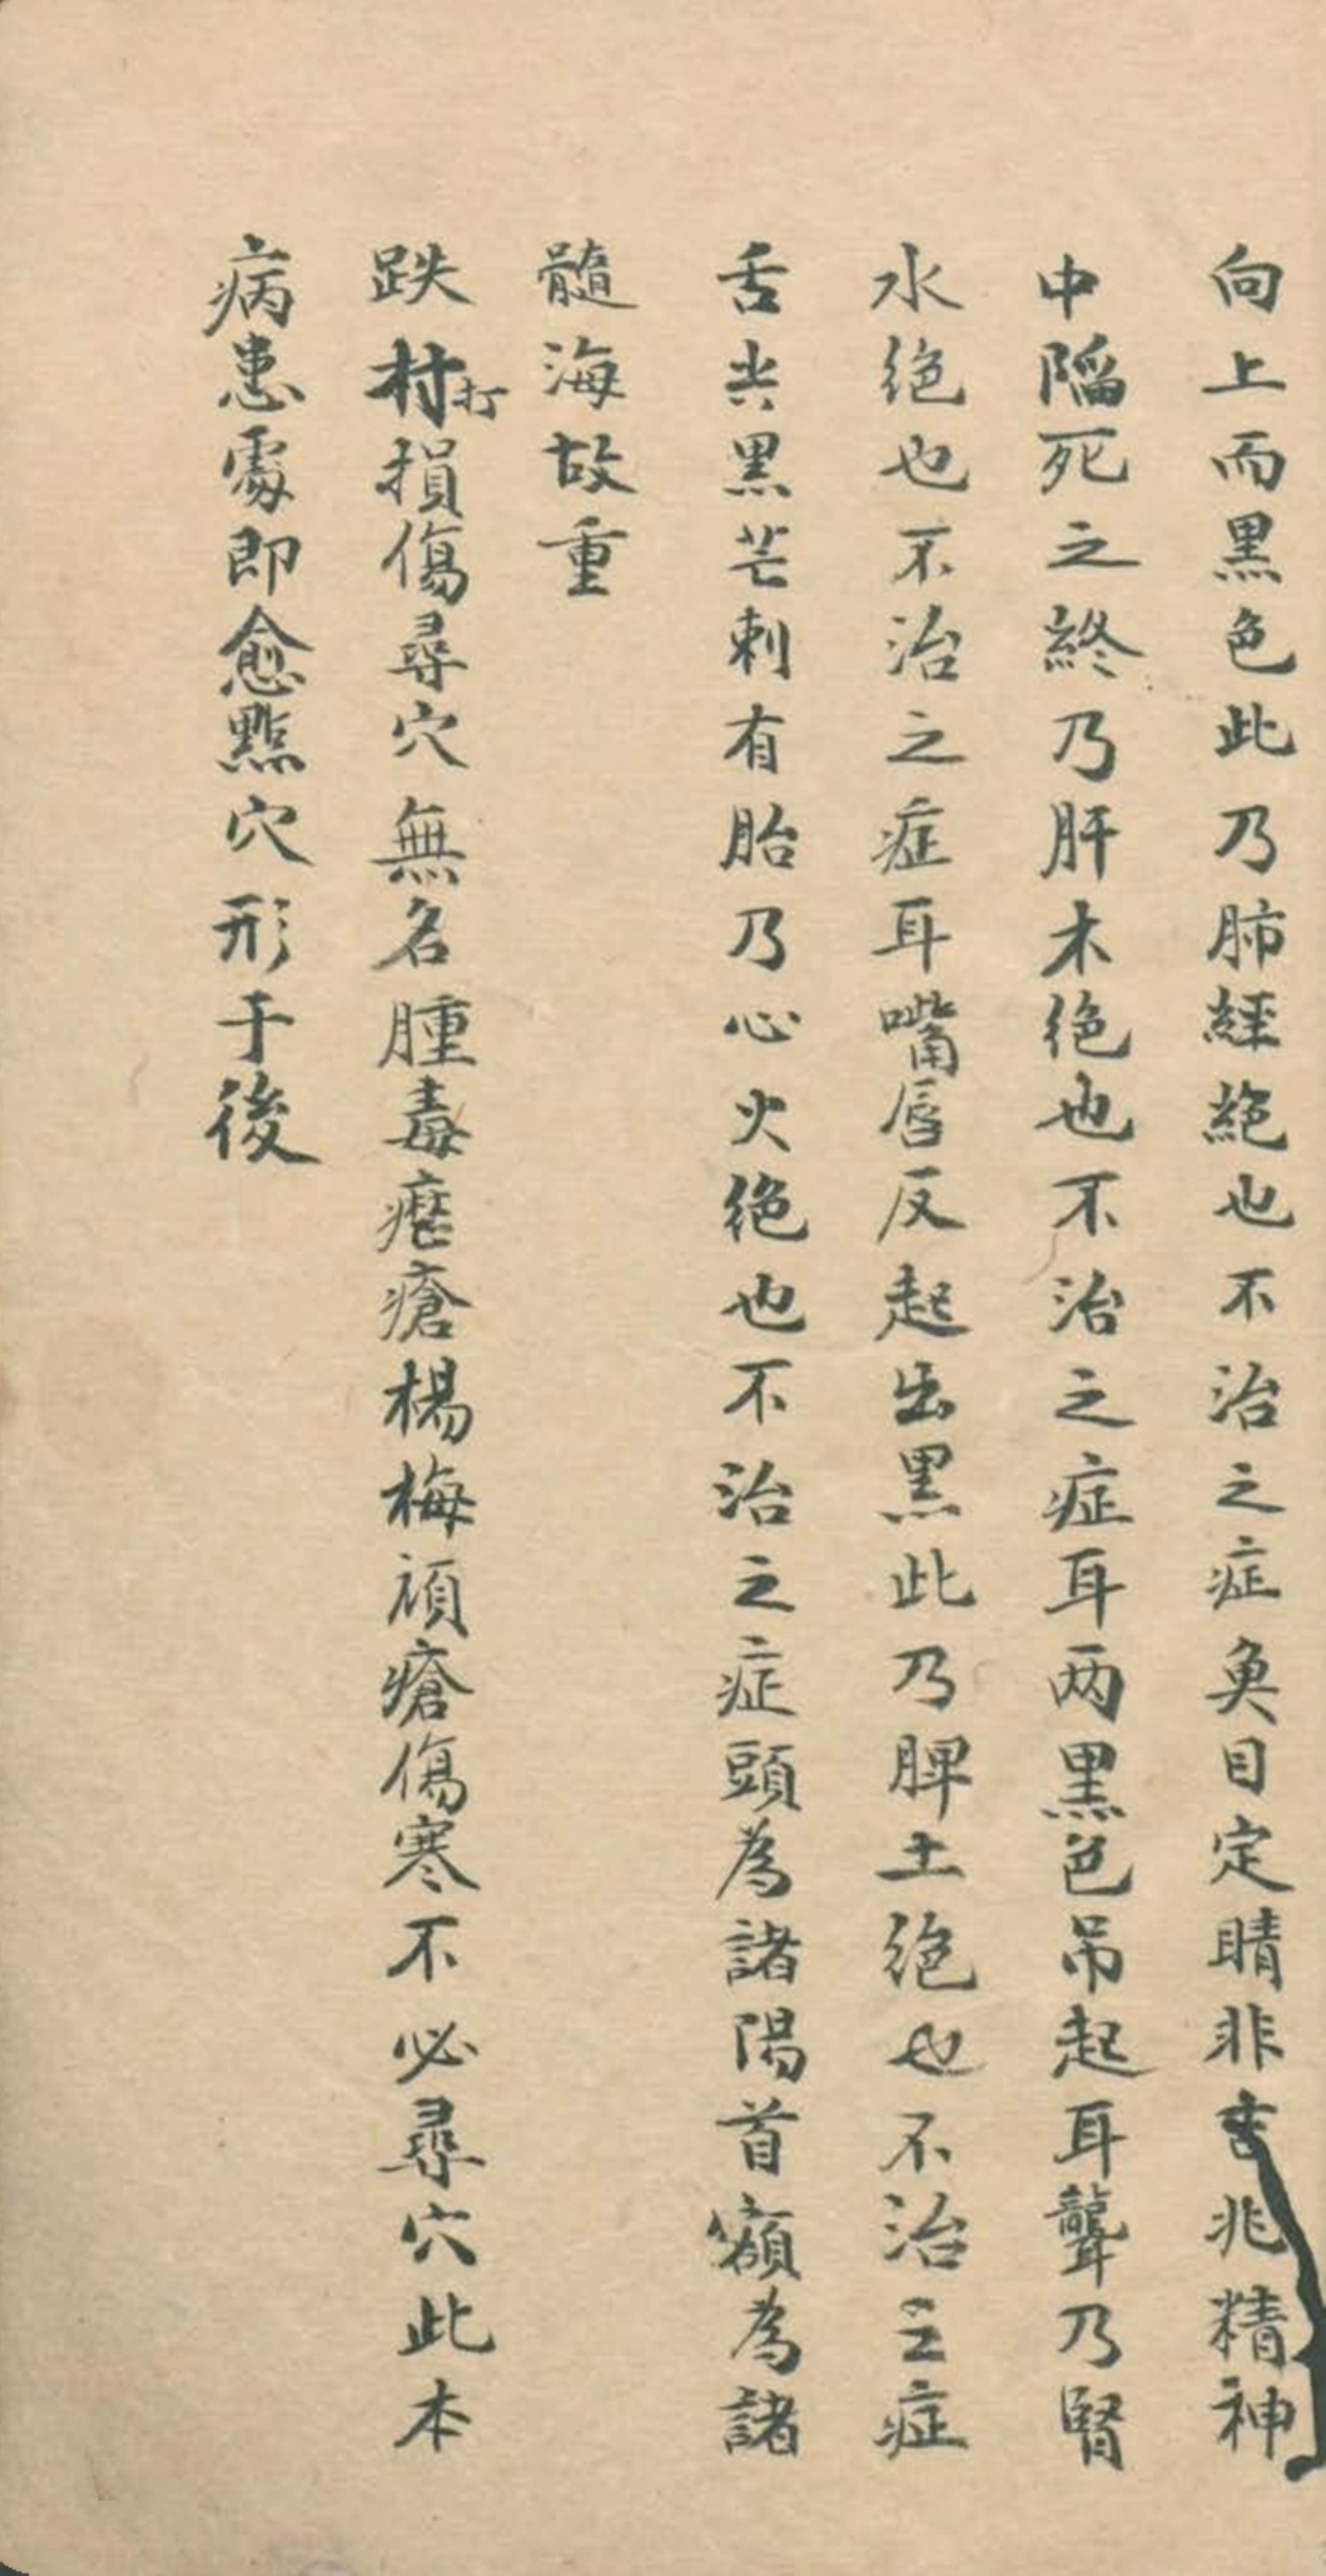 向上而黑色此乃肺經絶也不治之症魚目定睛非吉兆精神
中陷死之終乃肝木绝也不治之症耳两黑色吊起耳聾乃腎
水绝也不治之症耳嘴唇反起出黑此乃脾土绝也不治之症
舌出黑芒刺有胎乃心火绝也不治之症頭為諸陽首額為諸
髓海故重
跌村打損傷尋穴無名腫毒瘡楊梅頑瘡傷寒不必尋穴此本
病患處即愈點穴形于後